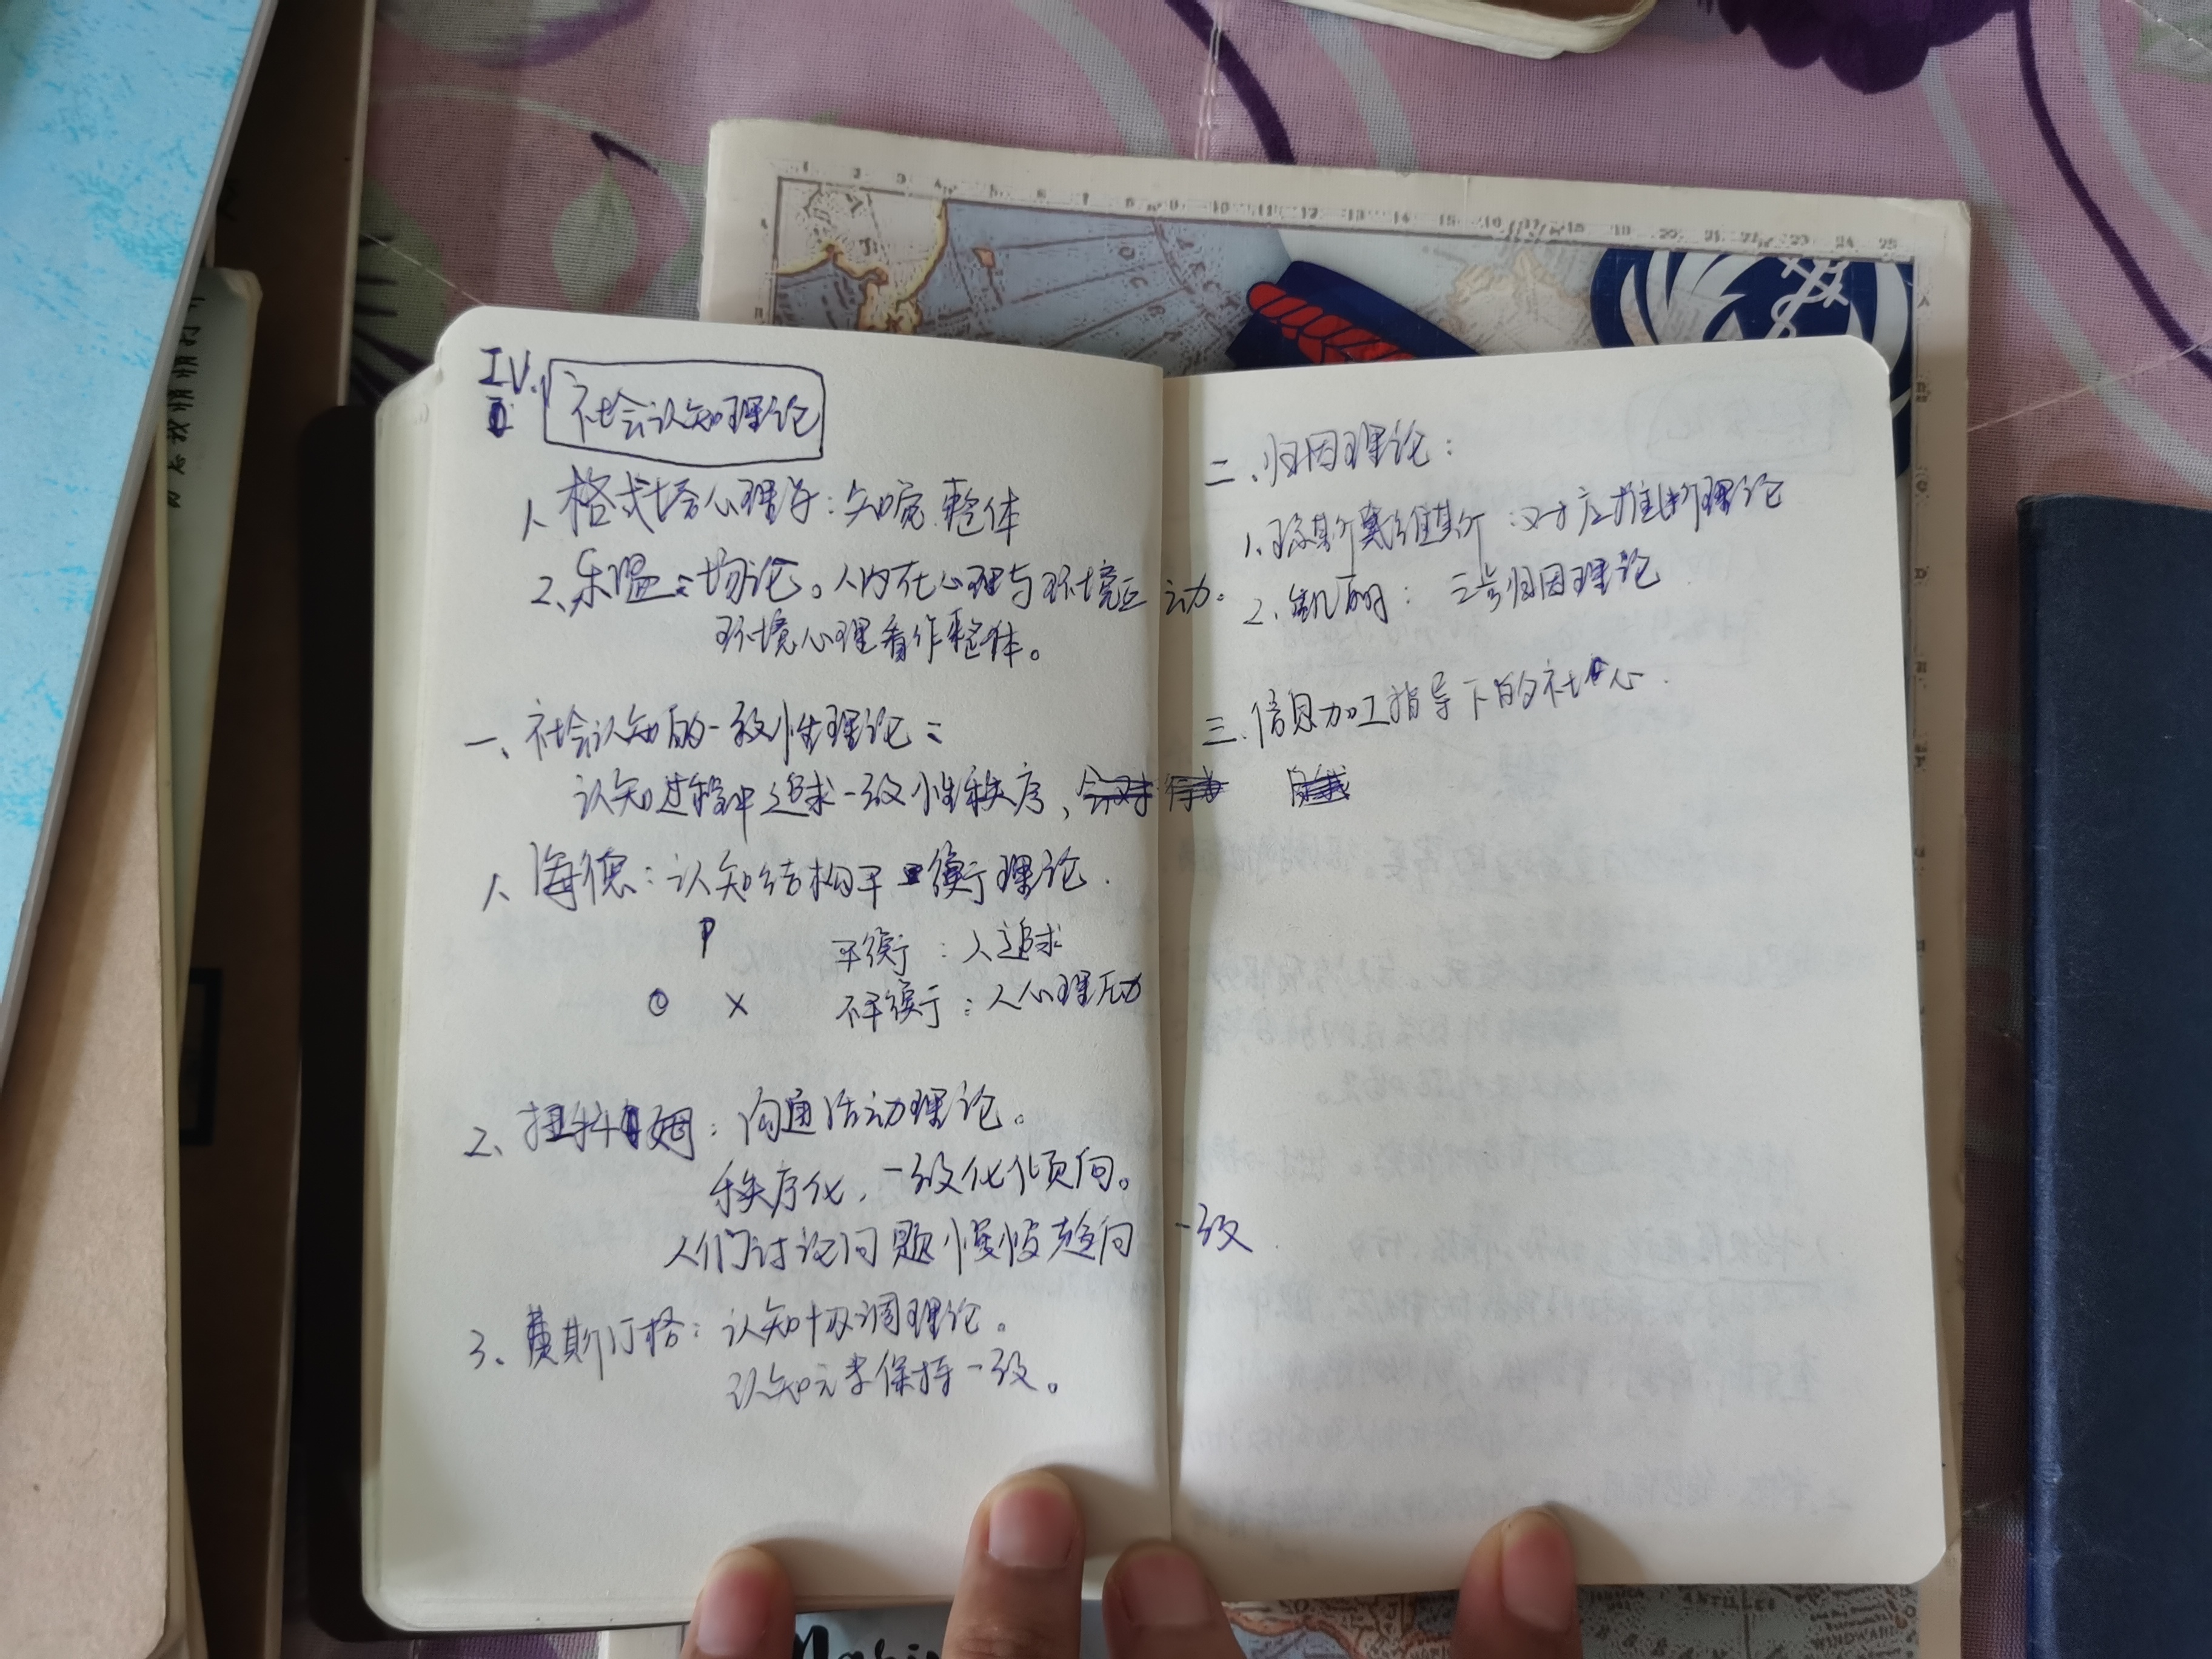 IV. 社会认知理论
1、格式塔心理学：知觉整体
2、乐温：场论。人内在心理与环境互动。
环境心理看作整体。
一、社会认知的一致性理论：
认知过程中追求一致性秩序，
1、海德：认知结构平衡理论.
P
平衡：人追求
O X
不平衡：人心理压力
2、扭科姆：沟通活动理论。
秩序化，一致化倾向。
人们讨论问题慢慢趋向一致
3、费斯汀格：认知协调理论。
认知元素保持一致。
二、归因理论：
1、琼斯戴维斯：对应推断理论
2、凯丽：三步归因理论
三、信息加工指导下的社心.
1 2 3 4 5 6 7 8 9 10 11 12 13 14 15 16 17 18 19 20 21 22 23 24 25
ANTILLES
WINDWARD